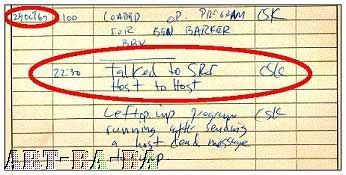 29 Oct 69 100 LOADED OP. PROGRAM CSK
FOR BEN BARKER
BBN
22:30 Talked to SRI CSK
Host to Host
Left op. imp. program CSK
running after sending
a host dead message
to imp.
ABT-BA-BAP